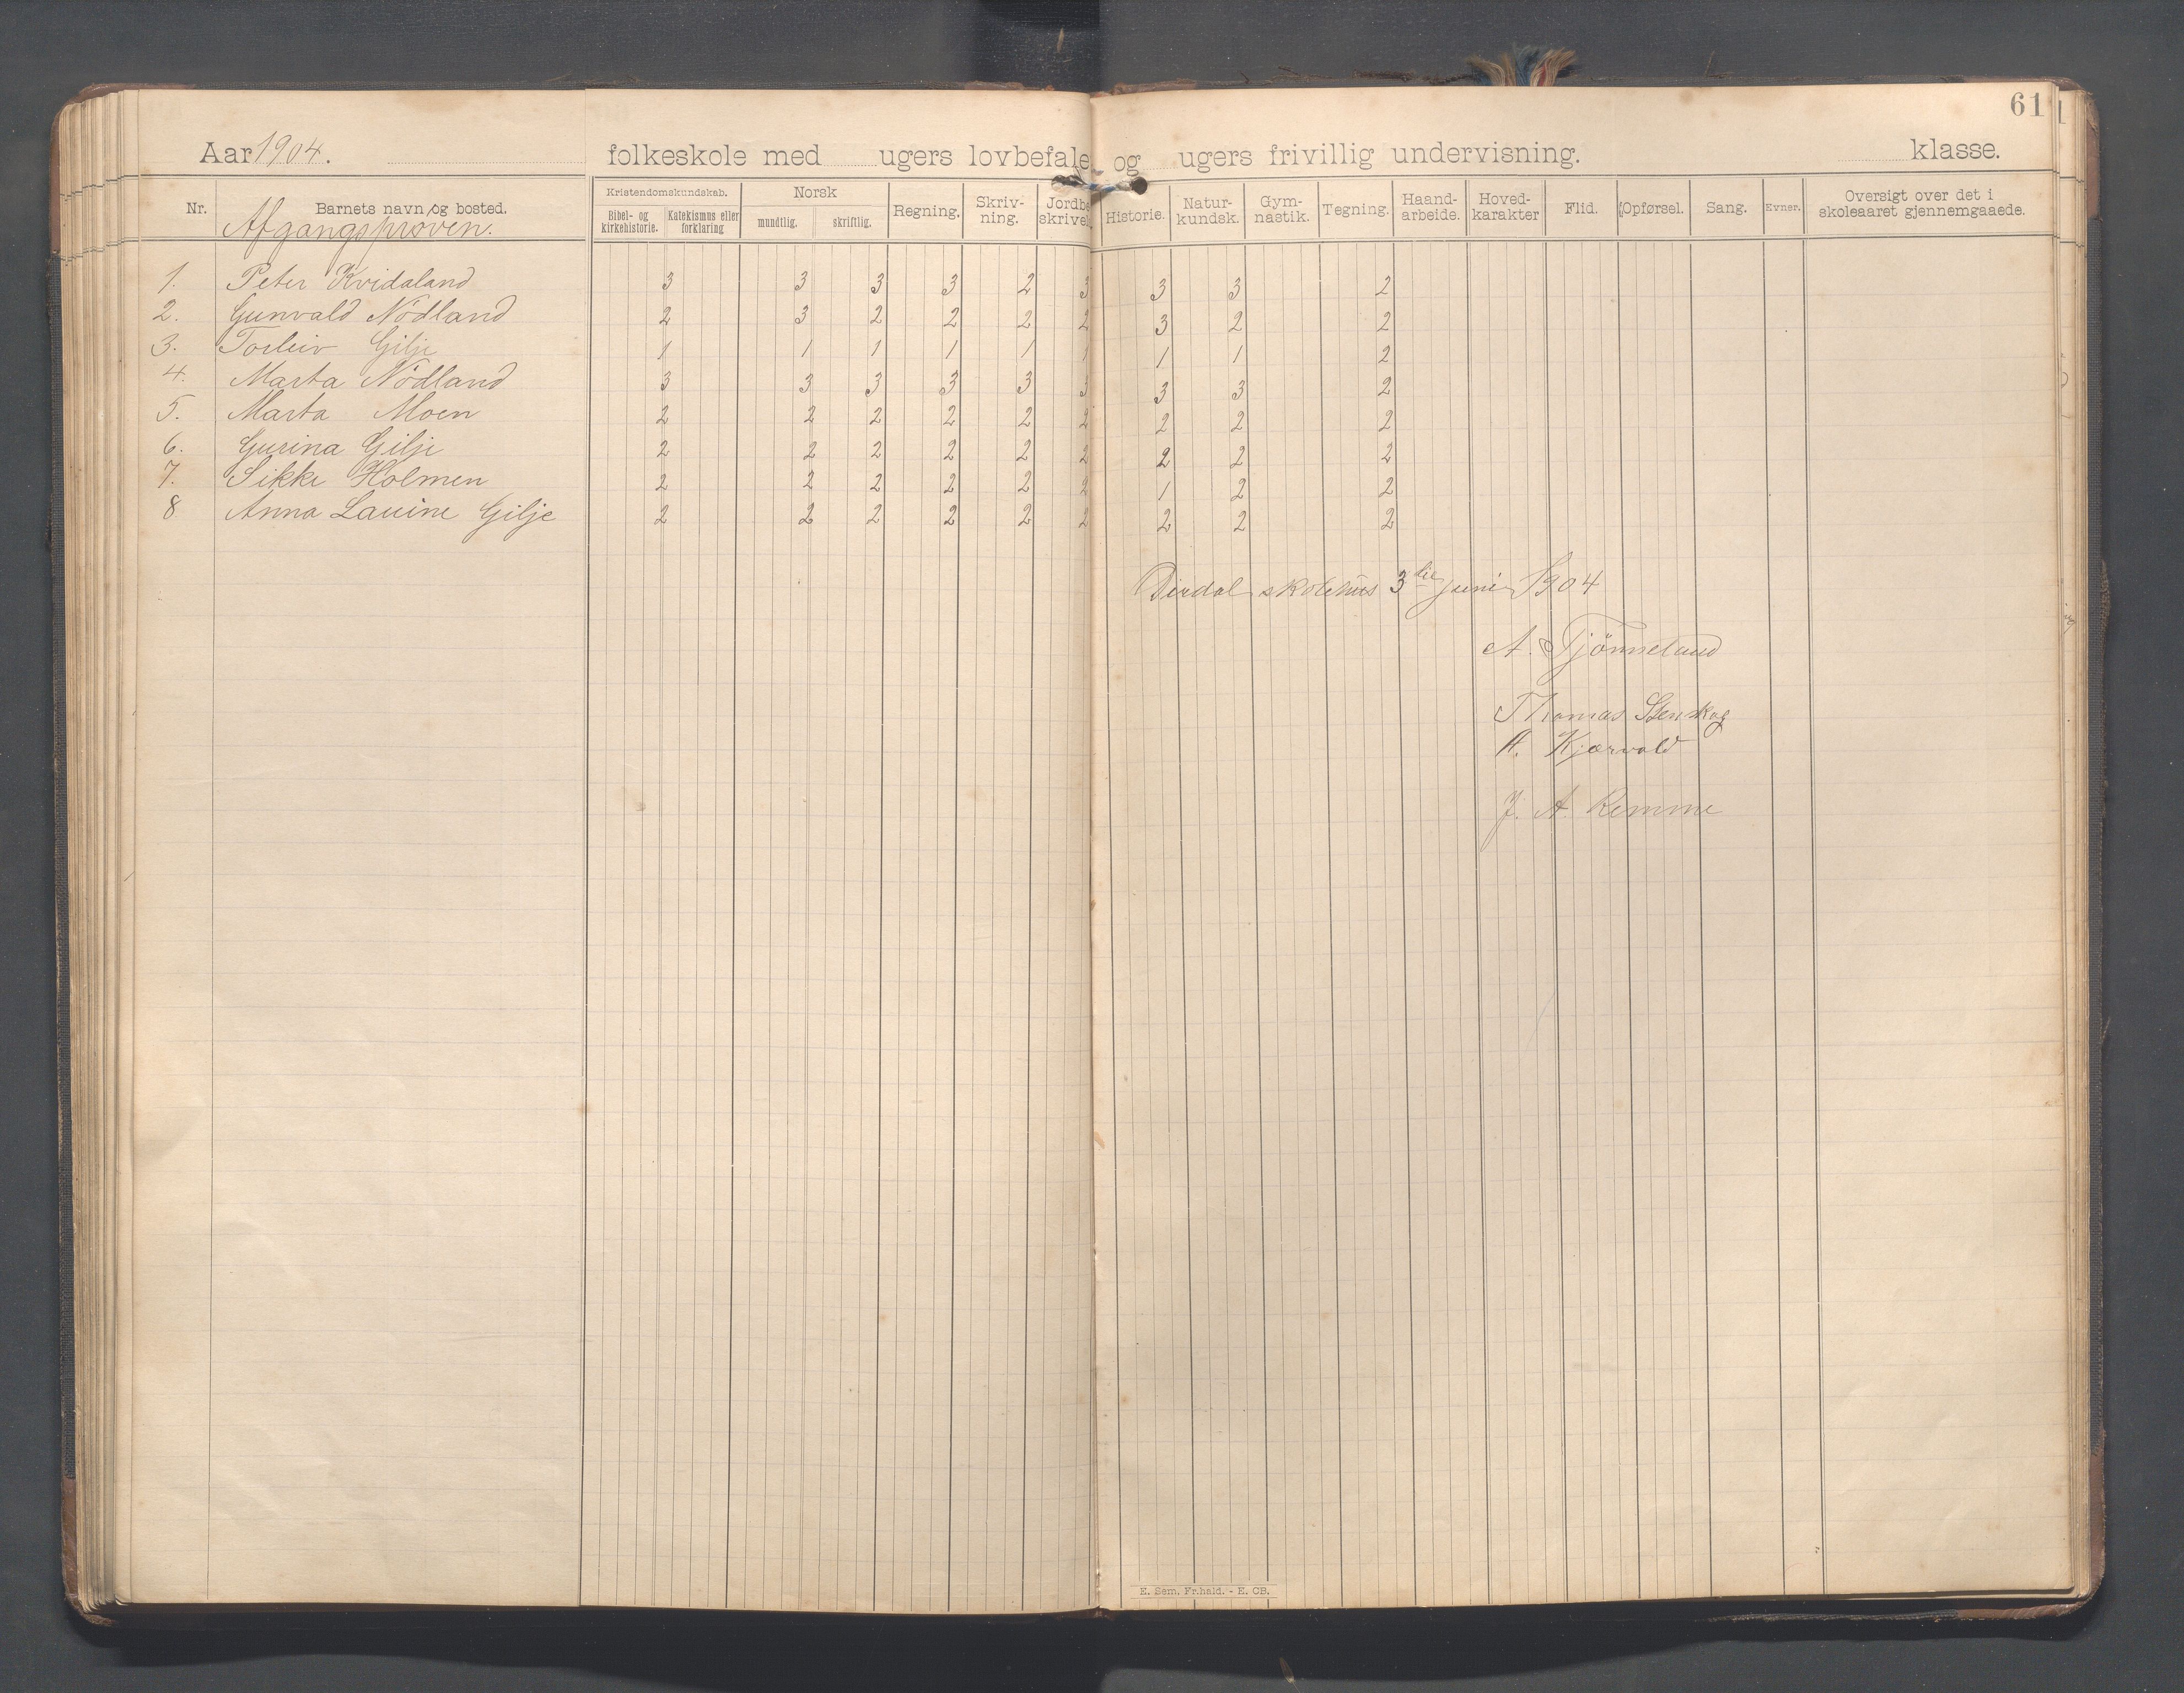 61
Aar 1904. folkeskole med ugers lovbefale og ugers frivillig undervisning. klasse.
Nr. Barnets navn og bosted. Kristendomskundskab. Bibel- og kirkehistorie. Katekismus eller forklaring Norsk mundtlig. skriftlig. Regning. Skriv-ning. Jordbe skrivel Historie. Natur-kundsk. Gym-nastik. Tegning. Haand-arbeide. Hoved-karakter Flid. Opførsel. Sang. Evner. Oversigt over det i skoleaaret gjennemgaaede.
Afgangsprøven.
1. Peter Kvidaland 3 3 3 3 2 3 3 3 2
2. Gunvald Nödland 2 3 2 2 2 2 3 2 2
3. Torleiv Gilje 1 1 1 1 1 1 1 1 2
4. Marta Nödland 3 3 3 3 3 3 3 3 2
5. Marta Moen 2 2 2 2 2 2 2 2 2
6. Gurina Gilje 2 2 2 2 2 2 2 2 2
7. Sikke Holmen 2 2 2 2 2 2 1 2 2
8 Anna Lauine Gilje 2 2 2 2 2 2 2 2 2
Dirdal skolehus 3die juni 1904
A. Tjönneland
Thomas Stenskog
A. Kjærvold
J. A. Remme
E. Sem, Fr.hald. - E. CB.